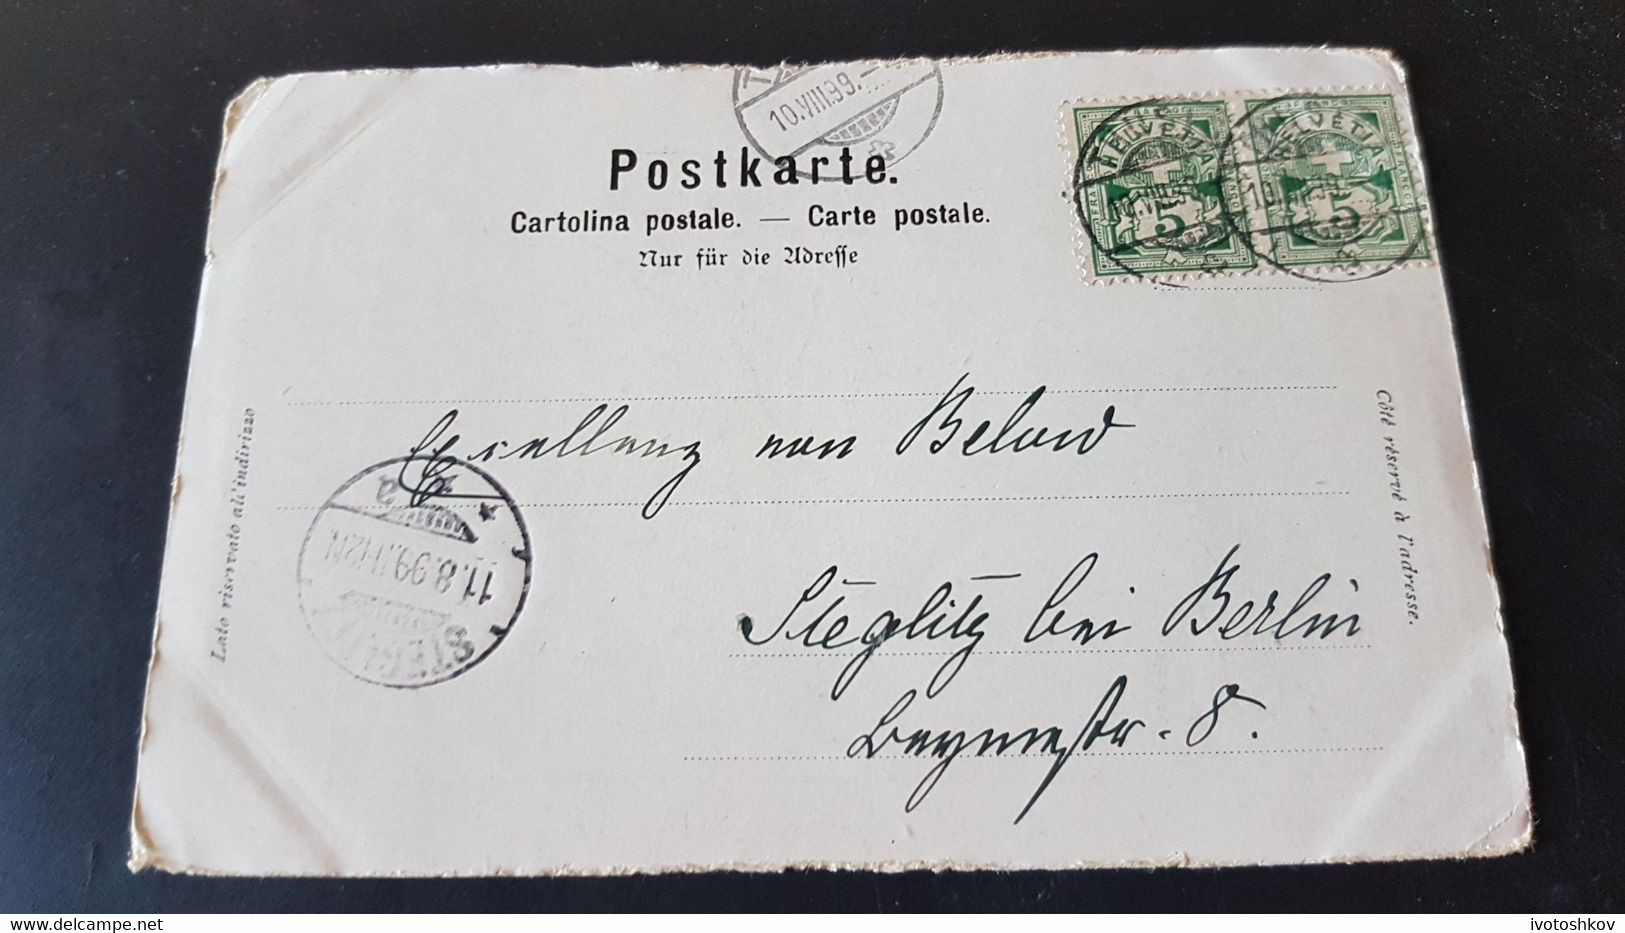 10.VIII.99.—
HELVETIA
5
HELVETIA
5
Postkarte.
Cartolina postale. — Carte postale.
Nur für die Adresse
Lato riservato all'indirizzo
Côté réservé à l'adresse.
Excellenz von Below
11.8.99.11-12N.
a
Steglitz bei Berlin
Beymestr. 8.
ivotoshkov